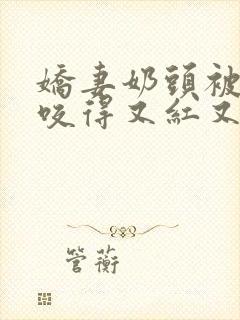 嬌妻奶頭被
咬得又紅又
管蘅